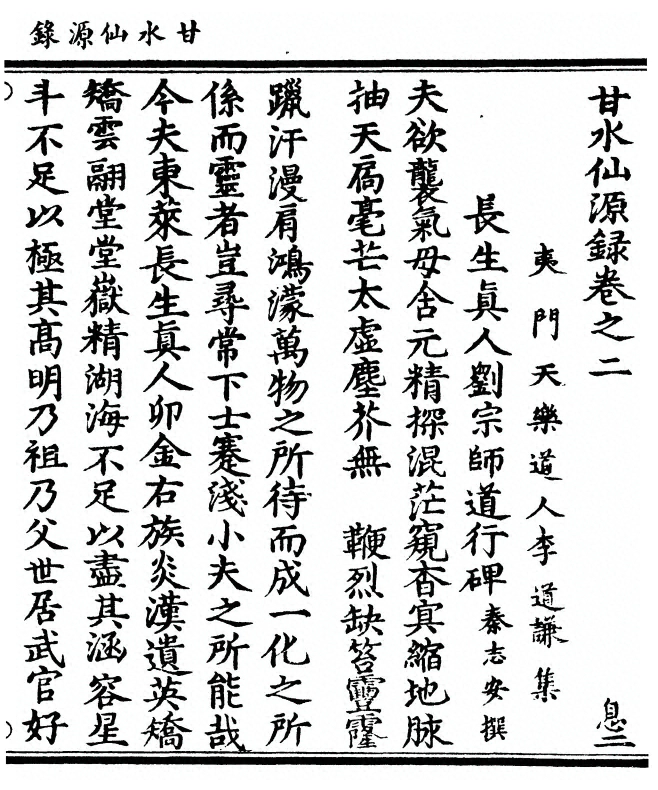 甘水仙源錄
甘水仙源録卷之二
息二
夷門天樂道人李道謙集
長生眞人劉宗師道行碑秦志安撰
夫欲襲氣母含元精探混茫窺杳冥縮地脉
抽天扄毫芒太虛塵芥無　鞭烈缺笞靊霳
躐汗漫肩鴻濛萬物之所待而成一化之所
係而靈者豈尋常下士蹇淺小夫之所能哉
今夫東萊長生眞人卯金右族炎漢遺英矯
矯雲翮堂堂嶽精湖海不足以盡其涵容星
斗不足以極其髙明乃祖乃父世居武官好